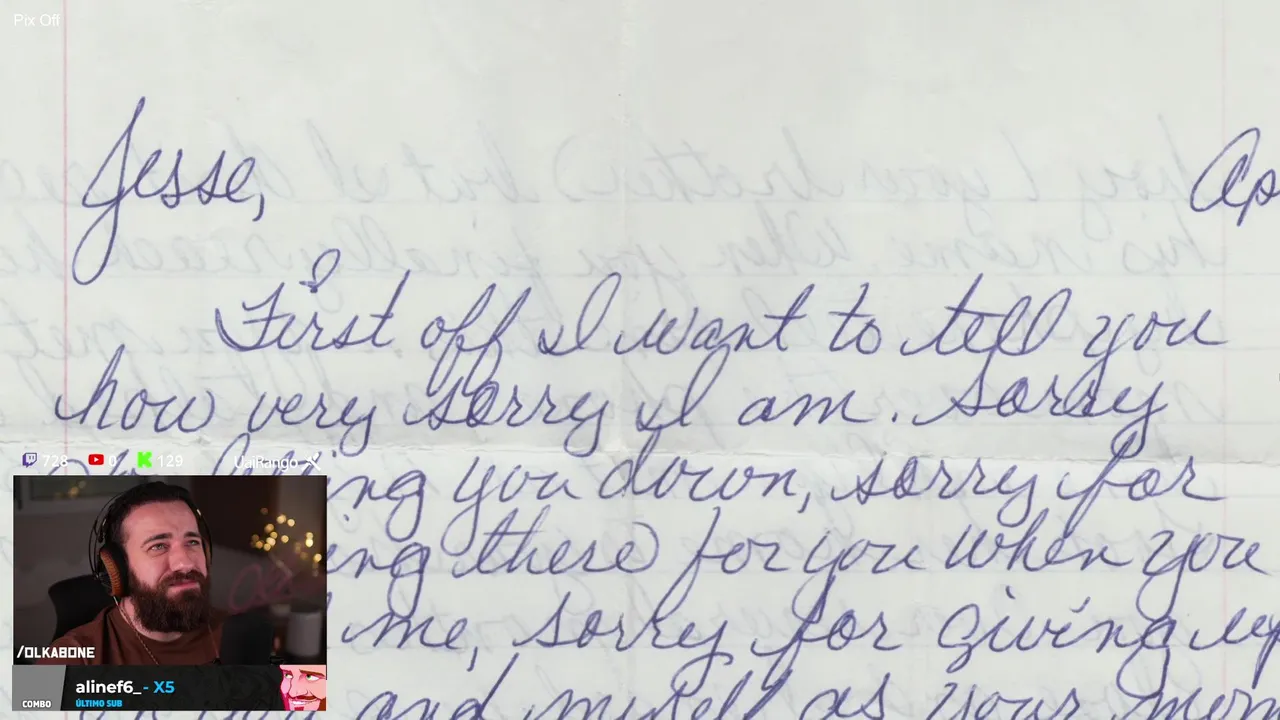 Pix Off
Jesse,
Ap
First off I want to tell you
how very sorry I am. Sorry
ing you down, sorry for
ing there for you when you
me, sorry for giving up
and myself as your mom
728 0 129 UaiRango
/OLKABONE
alinef6_ - X5
COMBO ÚLTIMO SUB